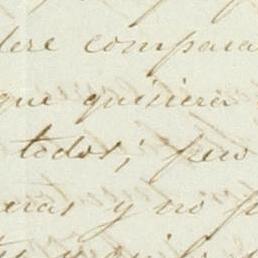 dere compara
que quisiera
todos; pero
eras y no p